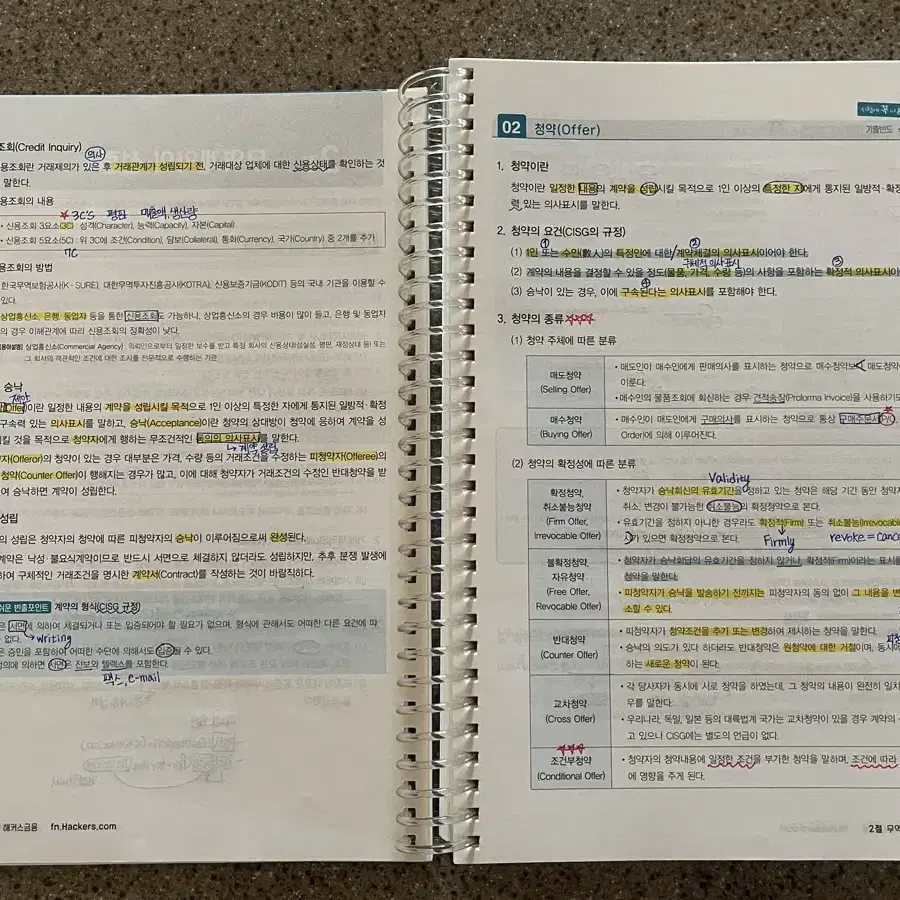 조회(Credit Inquiry)
의사
용조회란 거래제의가 있은 후 거래관계가 성립되기 전, 거래대상 업체에 대한 신용상태를 확인하는 것
말한다.
용조회의 내용
★ 3C'S 평판 매출액, 생산량
• 신용조회 3요소(3C) : 성격(Character), 능력(Capacity), 자본(Capital)
• 신용조회 5요소(5C) : 위 3C에 조건(Condition), 담보(Collateral), 통화(Currency), 국가(Country) 중 2개를 추가
7C
용조회의 방법
한국무역보험공사(K-SURE), 대한무역투자진흥공사(KOTRA), 신용보증기금(KODIT) 등의 국내 기관을 이용할 수
있다.
상업흥신소, 은행, 동업자 등을 통한 신용조회도 가능하나, 상업흥신소의 경우 비용이 많이 들고, 은행 및 동업자
의 경우 이해관계에 따라 신용조회의 정확성이 낮다.
용어설명) 상업흥신소(Commercial Agency) : 의뢰인으로부터 일정한 보수를 받고 특정 회사의 신용상태(성실성, 평판, 재정상태 등) 또는
그 회사의 객관적인 조건에 대한 조사를 전문적으로 수행하는 기관
승낙
제안
(Offer)이란 일정한 내용의 계약을 성립시킬 목적으로 1인 이상의 특정한 자에게 통지된 일방적·확정
구속력 있는 의사표시를 말하고, 승낙(Acceptance)이란 청약의 상대방이 청약에 응하여 계약을 성
킬 것을 목적으로 청약자에게 행하는 무조건적인 동의의 의사표시를 말한다.
↳ 계약 성립
자(Offeror)의 청약이 있는 경우 대부분은 가격, 수량 등의 거래조건을 수정하는 피청약자(Offeree)의
청약(Counter Offer)이 행해지는 경우가 많고, 이에 대해 청약자가 거래조건의 수정인 반대청약을 받
여 승낙하면 계약이 성립한다.
성립
의 성립은 청약자의 청약에 따른 피청약자의 승낙이 이루어짐으로써 완성된다.
계약은 낙성·불요식계약이므로 반드시 서면으로 체결하지 않더라도 성립하지만, 추후 분쟁 발생에
하여 구체적인 거래조건을 명시한 계약서(Contract)를 작성하는 것이 바람직하다.
쉬운 빈출포인트 계약의 형식(CISG 규정)
은 서면에 의하여 체결되거나 또는 입증되어야 할 필요가 없으며, 형식에 관해서도 어떠한 다른 요건에 따
없다. writing
은 증인을 포함하여 어떠한 수단에 의해서도 입증될 수 있다.
정의에 의하면 서면은 전보와 텔렉스를 포함한다.
팩스, e-mail
해커스금융 fn.Hackers.com
02 청약(Offer)
기출빈도
1. 청약이란
청약이란 일정한 내용의 계약을 성립시킬 목적으로 1인 이상의 특정한 자에게 통지된 일방적·확정
력 있는 의사표시를 말한다.
2. 청약의 요건(CISG의 규정)
① ②
(1) 1인 또는 수인(數人)의 특정인에 대한 / 계약체결의 의사표시이어야 한다.
구체적 의사표시 ③
(2) 계약의 내용을 결정할 수 있을 정도(물품, 가격, 수량 등)의 사항을 포함하는 확정적 의사표시이
④
(3) 승낙이 있는 경우, 이에 구속된다는 의사표시를 포함해야 한다.
3. 청약의 종류 ☆☆☆
(1) 청약 주체에 따른 분류
매도청약
(Selling Offer)
• 매도인이 매수인에게 판매의사를 표시하는 청약으로 매수청약보다 매도청약
이룬다.
• 매수인의 물품조회에 회신하는 경우 견적송장(Proforma Invoice)을 사용하기도
매수청약
(Buying Offer)
• 매수인이 매도인에게 구매의사를 표시하는 청약으로 통상 구매주문서(P/O
Order)에 의해 이루어진다.
(2) 청약의 확정성에 따른 분류
Validity
확정청약,
취소불능청약
(Firm Offer,
Irrevocable Offer)
• 청약자가 승낙회신의 유효기간을 정하고 있는 청약은 해당 기간 동안 청약자
취소, 변경이 불가능한 취소불능의 확정청약으로 본다.
• 유효기간을 정하지 아니한 경우라도 확정적(Firm) 또는 취소불능(Irrevocable
가 있으면 확정청약으로 본다. Firmly revoke = cance
불확정청약,
자유청약
(Free Offer,
Revocable Offer)
• 청약자가 승낙회답의 유효기간을 정하지 않거나, 확정적(Firm)이라는 표시를
청약을 말한다.
• 피청약자가 승낙을 발송하기 전까지는 피청약자의 동의 없이 그 내용을 변
소할 수 있다.
반대청약
(Counter Offer)
• 피청약자가 청약조건을 추가 또는 변경하여 제시하는 청약을 말한다.
• 승낙의 의도가 있다 하더라도 반대청약은 원청약에 대한 거절이며, 동시에
하는 새로운 청약이 된다.
교차청약
(Cross Offer)
• 각 당사자가 동시에 서로 청약을 하였는데, 그 청약의 내용이 완전히 일치
우를 말한다.
• 우리나라, 독일, 일본 등의 대륙법계 국가는 교차청약이 있을 경우 계약의
고 있으나 CISG에는 별도의 언급이 없다.
★★★
조건부청약
(Conditional Offer)
• 청약자의 청약내용에 일정한 조건을 부가한 청약을 말하며, 조건에 따라
에 영향을 주게 된다.
2절 무역